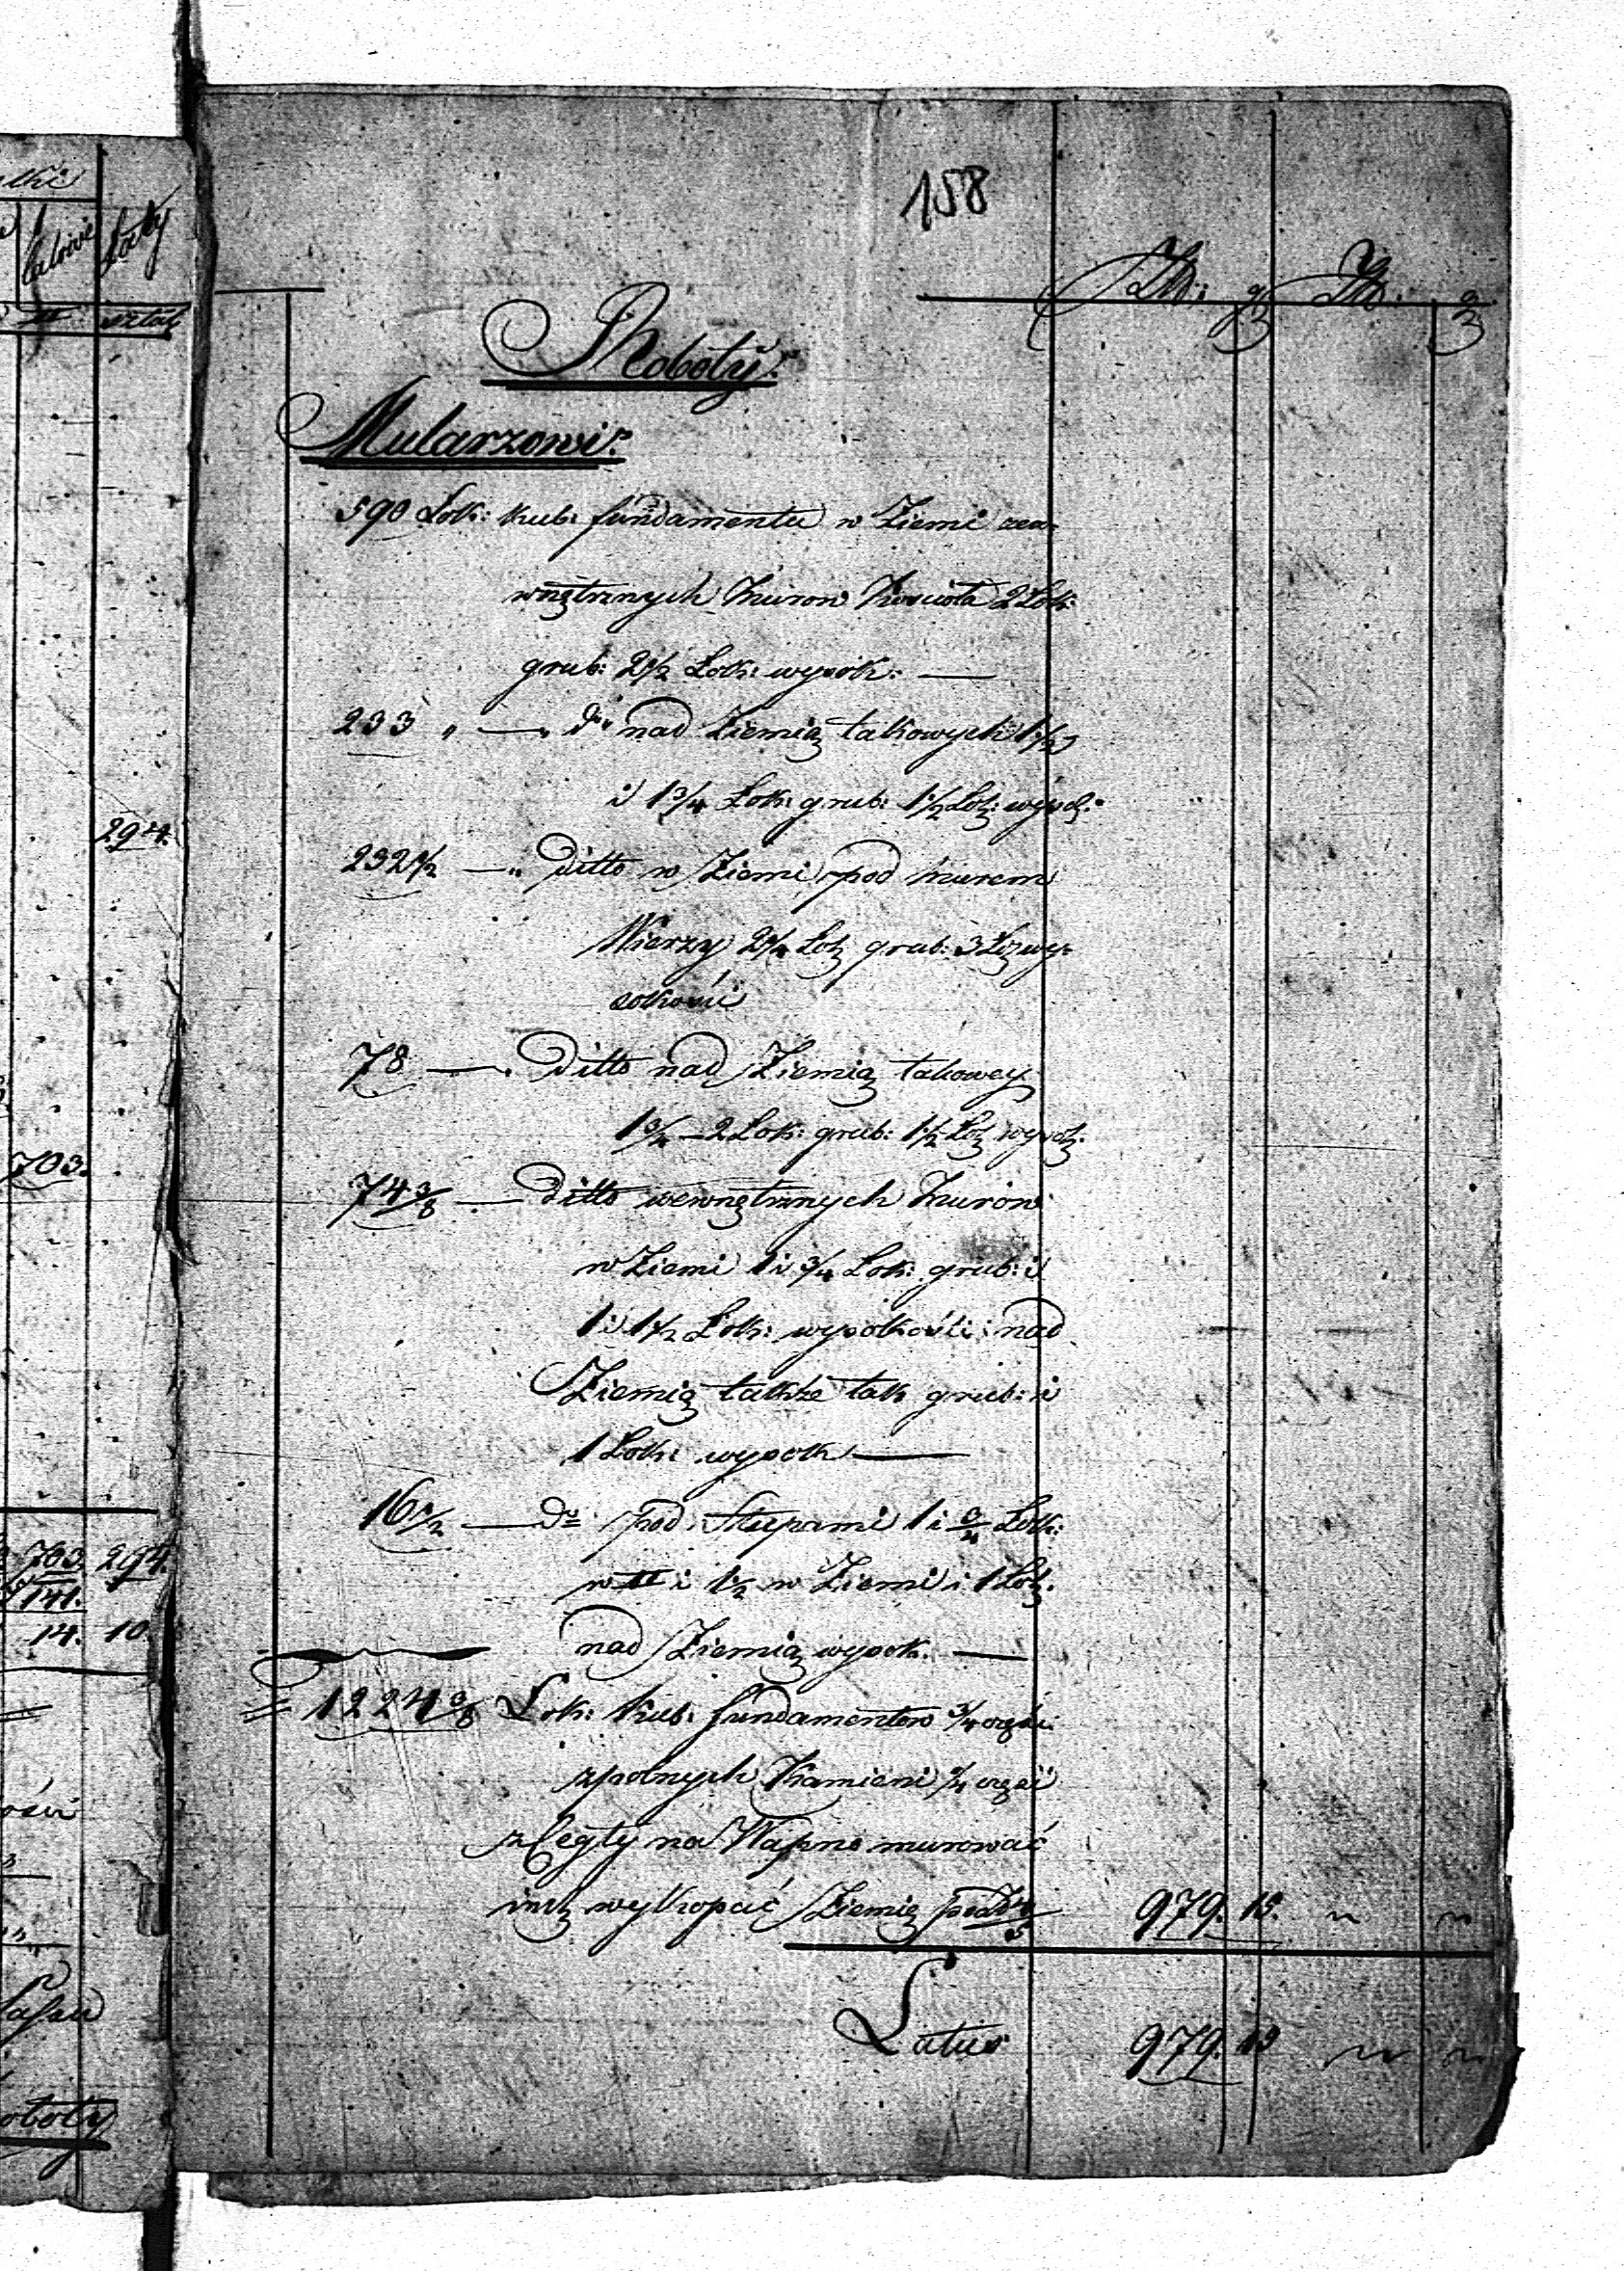 158
Zł: gr Zł: gr
Roboty:
Mularzowi:
590 Łok: kub: fundamentu w Ziemi zew=
wnętrznych murow Koscioła 2 Łok:
grub: 2½ Łok: wysok: —
233 " — " do nad Ziemią takowych 1½
i 1¾ Łok: grub: 1½ Łok: wysok:
232½ — " Ditto w Ziemi pod murem
Wierzy Łok grub: 3 Łok wy=
sokości
78 — " Ditto nad Ziemią takowey
1¾ — 2 Łok: grub: 1½ Łok wysok:
74⅜ — Ditto wewnętrznych murów
w Ziemi 1 i ¾ Łok: grub: i
1 i 1½ Łok: wysokości; nad
Ziemią także tak grub: i
1 Łok: wysok —
16½ — do pod Słupami 1 i Łok:
w □ i 1½ w Ziemi i 1 Łok.
nad Ziemią wysok. —
= 1224⅜ Łok: kub: fundamentow ¾ części
zpolnych Kamieni ¼ części
z Cegły na Wapno murować
wykopać Ziemię 979. 15. " "
Latus 979. 15 " "
294.
703.
703. 294.
141.
14. 10.